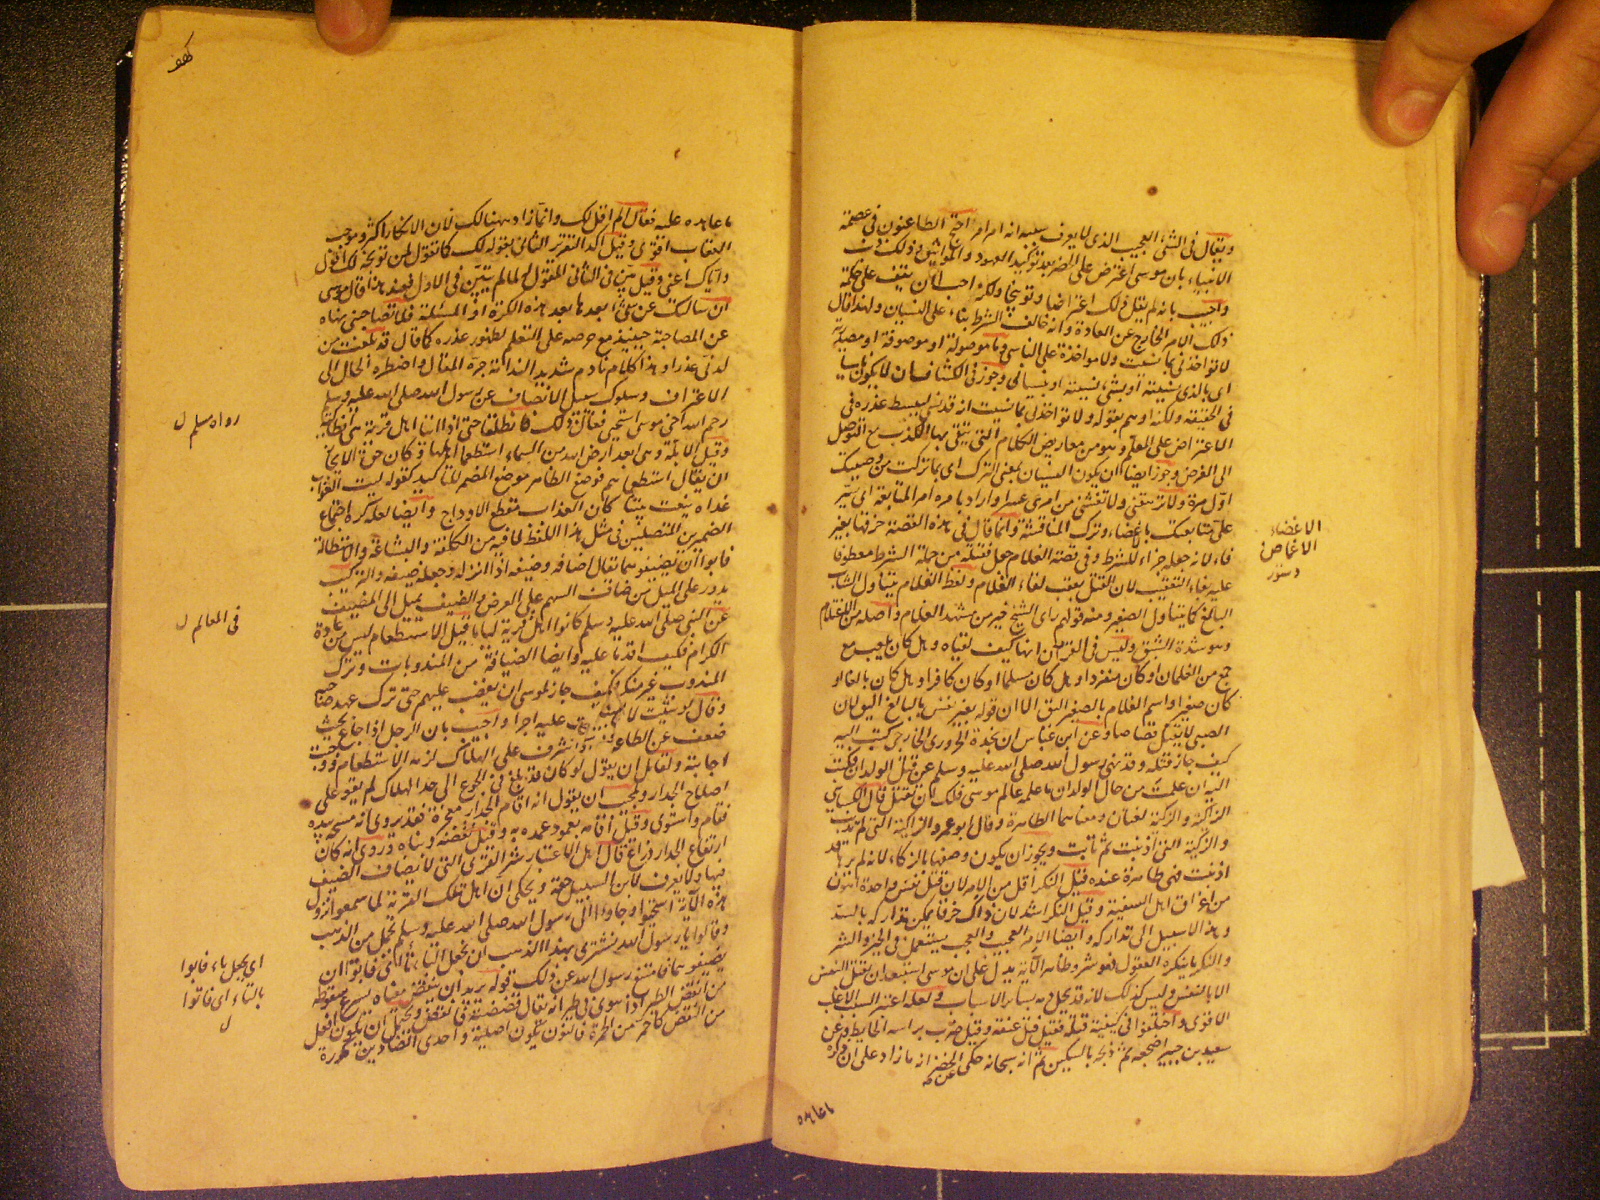 ويقال في الشئ العجيب الذي لا يعرف سببه انه امر امر احتج الطاعنون في عصمة
الانبياء بان موسى اعترض على الخضر بعد توكيد العهود والمواثيق وذلك ذنب
واجيب بانه لم يقل ذلك اعتراضا وتوبيخا ولكنه احب ان يقف على حكمة
ذلك الامر الخارج عن العادة وانه خالف الشرط بناء على النسيان ولهذا قال
لا تؤاخذني بما نسيت ولا مؤاخذة على الناسي وما موصولة او موصوفة او مصدرية
اى بالذي نسيته او بشئ نسيته او بنسياني وجوز في الكشاف ان لا يكون ناسيا
في الحقيقة ولكنه اوهم بقوله ولا تؤاخذني بما نسيت انه قد نسي ليبسط عذره في
الاعتراض على المعلم وهو من معاريض الكلام التي يتقى بها الكذب مع التوصل
الى الغرض وجوز ايضا ان يكون النسيان بمعنى الترك اى بما تركت من وصيتك
اول مرة ولا ترهقني ولا تغشني من امري عسرا واراد بامره امر المتابعة اى يسر
على متابعتك بالاغضاء وترك المناقشة وانما قال في هذه القصة خرقها بغير
فاء لانه جعله جزاء للشرط وفي قصة الغلام جعل فقتله من جملة الشرط معطوفا
عليه بفاء التعقيب لان القتل يعقب لقاء الغلام ولفظ الغلام يتناول الشاب
البالغ كما يتناول الصغير ومنه قولهم راى الشيخ خير من مشهد الغلام واصله من الاغتلام
وهو شدة الشبق وليس في القرآن انهما كيف لقياه وهل كان يلعب مع
جمع من الغلمان او كان منفردا وهل كان مسلما او كان كافرا وهل كان بالغا او
كان صغيرا واسم الغلام بالصغير اليق الا ان قوله بغير نفس بالبالغ اليق لان
الصبي لا يقتل قصاصا وعن ابن عباس ان نجدة الحروري الخارجي كتب اليه
كيف جاز قتله وقد نهى رسول الله صلى الله عليه وسلم عن قتل الولدان فكتب
اليه ان علمت من حال الولدان ما علمه عالم موسى فلك ان تقتل قال الكسائي
الزاكية والزكية لغتان ومعناهما الطاهرة وقال ابو عمرو الزاكية التي لم تذنب
والزكية التي اذنبت ثم تابت ويجوز ان يكون وصفها بالزكاء لانه لم يرها قد
اذنبت فهي طاهرة عنده قيل النكر اقل من الامر لان قتل نفس واحدة اهون
من اغراق اهل السفينة وقيل النكر اشد لان ذاك خرقا يمكن تداركه بالسد
وهذا لا سبيل الى تداركه وايضا الامر العجيب والعجب يستعمل في الخير والشر
والنكر ما ينكره العقول فهو شر وظاهر الآية يدل على ان موسى استبعد ان يقتل النفس
الا بالنفس وليس كذلك لانه قد يحل دمه بسائر الاسباب ولعله اعتبر السبب الاغلب
الاقوى واختلفوا في كيفية قتله فقيل فتل عنقه وقيل ضرب براسه الحايط وعن
سعيد بن جبير اضجعه ثم ذبحه بالسكين ثم انه سبحانه حكى عن الخضر انه ما زاد على ان ذكره
ما عاهده
الاغضاء
الاغماض
دستور
كهف
ما عاهده عليه فقال الم اقل لك وانما زاد ههنا لك لان الانكار اكثر وموجب
العتاب اقوى وقيل اكد التقرير الثاني بقوله لك كما تقول لمن توبخه لك اقول
واياك اعني وقيل بين في الثاني المقول له لما لم يتبين في الاول فعند هذا قال موسى
ان سالتك عن شئ بعدها بعد هذه الكرة او المسئلة فلا تصاحبني نهاه
عن المصاحبة حينئذ مع حرصه على التعلم لظهور عذره كما قال قد بلغت من
لدني عذرا وهذا كلام نادم شديد الندامة جره المقال واضطره الحال الى
الاعتراف وسلوك سبيل الانصاف عن رسول الله صلى الله عليه وسلم
رحم الله اخي موسى استحيى فقال ذلك فانطلقا حتى اذا اتيا اهل قرية هي انطاكية
وقيل الابلة وهي ابعد ارض الله من السماء استطعما اهلها وكان حق الايجاز
ان يقال استطعماهم فوضع الظاهر موضع المضمر للتاكيد كقوله ليت الغراب
غداة ينعب بيننا كان الغراب مقطع الاوداج وايضا لعله كره اجتماع
الضميرين المتصلين في مثل هذا اللفظ لما فيه من الكلفة والبشاعة والاستطالة
فابوا ان يضيفوهما يقال اضافه وضيفه اذا انزله وجعله ضيفه والتركيب
يدور على الميل من ضاف السهم على الغرض والضيف يميل الى المضيف
عن النبي صلى الله عليه وسلم كانوا اهل قرية لياما قيل الاستطعام ليس من عادة
الكرام فكيف اقدما عليه وايضا الضيافة من المندوبات وترك
المندوب غير منكر فكيف جاز لموسى ان يغضب عليهم حتى ترك عهد صاحبه
وقال لو شئت لاتخذت عليه اجرا واجيب بان الرجل اذا جاع بحيث
ضعف عن الطاعة او اشرف على الهلاك لزمه الاستطعام ووجبت
اجابته ولقائل ان يقول لو كان قد بلغ في الجوع الى حد الهلاك لم يقو على
اصلاح الجدار ولمجيب ان يقول انه اقام الجدار معجزة فقد يروى انه مسحه بيده
فقام واستوى وقيل اقامه بعمود عمده به وقيل نقضه وبناه وروى انه كان
ارتفاع الجدار مائة ذراع قال اهل الاعتبار شر القرى التي لا يضاف الضيف
فيها ولا يعرف لابن السبيل حقه ويحكى ان اهل تلك القرية لما سمعوا نزول
هذه الآية استحيوا وجاءوا الى رسول الله صلى الله عليه وسلم بحمل من الذهب
وقالوا يا رسول الله نشتري بهذا الذهب ان تجعل الباء تاء اى فاتوا ان
يضيفوهما فامتنع رسول الله عن ذلك قوله يريد ان ينقض معناه يسرع سقوطه
من انقض الطير اذا هوى في طيرانه يقال قضضته فانقض ويحتمل ان يكون افعل
من النقض كاحمر من الحمرة فالنون يكون اصلية واحدى الضادين مكررة
رواه مسلم ل
في المعالم ل
اى يجعل باء فابوا
بالتاء اى فاتوا
ل